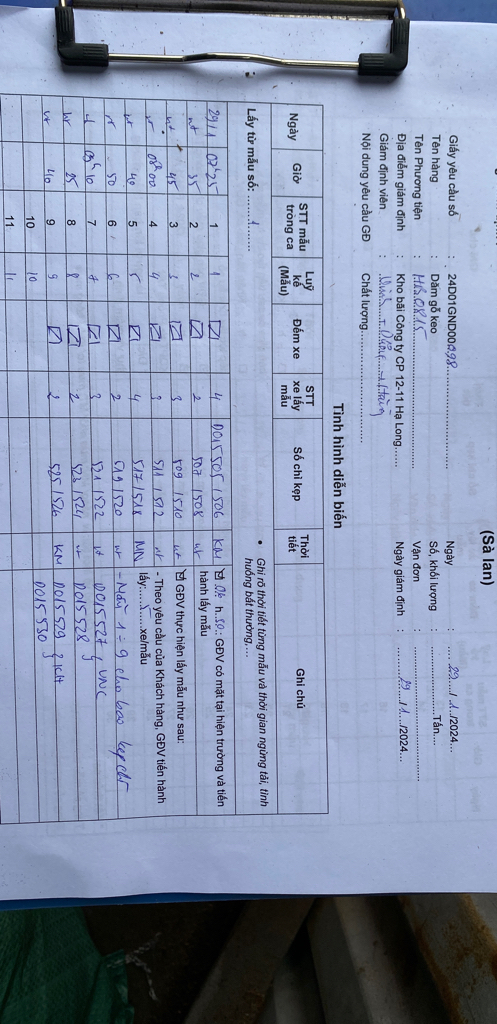 (Sà lan)
Giấy yêu cầu số : 24D01GND00298 Ngày : 29.../1.../2024...
Tên hàng : Dăm gỗ keo Số, khối lượng : Tấn....
Tên Phương tiện : HP.0815 Vận đơn :
Địa điểm giám định : Kho bãi Công ty CP 12-11 Hạ Long Ngày giám định : 29.../1.../2024...
Giám định viên :
Nội dung yêu cầu GĐ : Chất lượng
Tình hình diễn biến
Ngày Giờ STT mẫu trong ca Luỹ kế (Mẫu) Đếm xe STT xe lấy mẫu Số chì kẹp Thời tiết Ghi chú
Lấy từ mẫu số: ....1....
• Ghi rõ thời tiết từng mẫu và thời gian ngừng tải, tình huống bất thường,...
29/1 07h25 1 1 ☑ 4 D015505 / 506 KM ☑ 06 h 50: GĐV có mặt tại hiện trường và tiến hành lấy mẫu
nt 35 2 2 ☑ 2 507 / 508 nt
nt 45 3 3 ☑ 3 509 / 510 nt ☑ GĐV thực hiện lấy mẫu như sau:
nt 08h00 4 4 ☑ 3 511 / 512 nt - Theo yêu cầu của Khách hàng, GĐV tiến hành
nt 40 5 5 ☑ 4 517 / 518 MN lấy:....5....xe/mẫu
nt 50 6 6 ☑ 2 519 / 520 nt - Mẫu 1 ÷ 9 cho bao kẹp chì
09h10 7 7 ☑ 3 521 / 522 nt D015527 } VNC
nt 25 8 8 ☑ 2 523 / 524 nt D015528
nt 40 9 9 ☑ 2 525 / 526 KM D015529 } KH
10 10 D015530
11 11